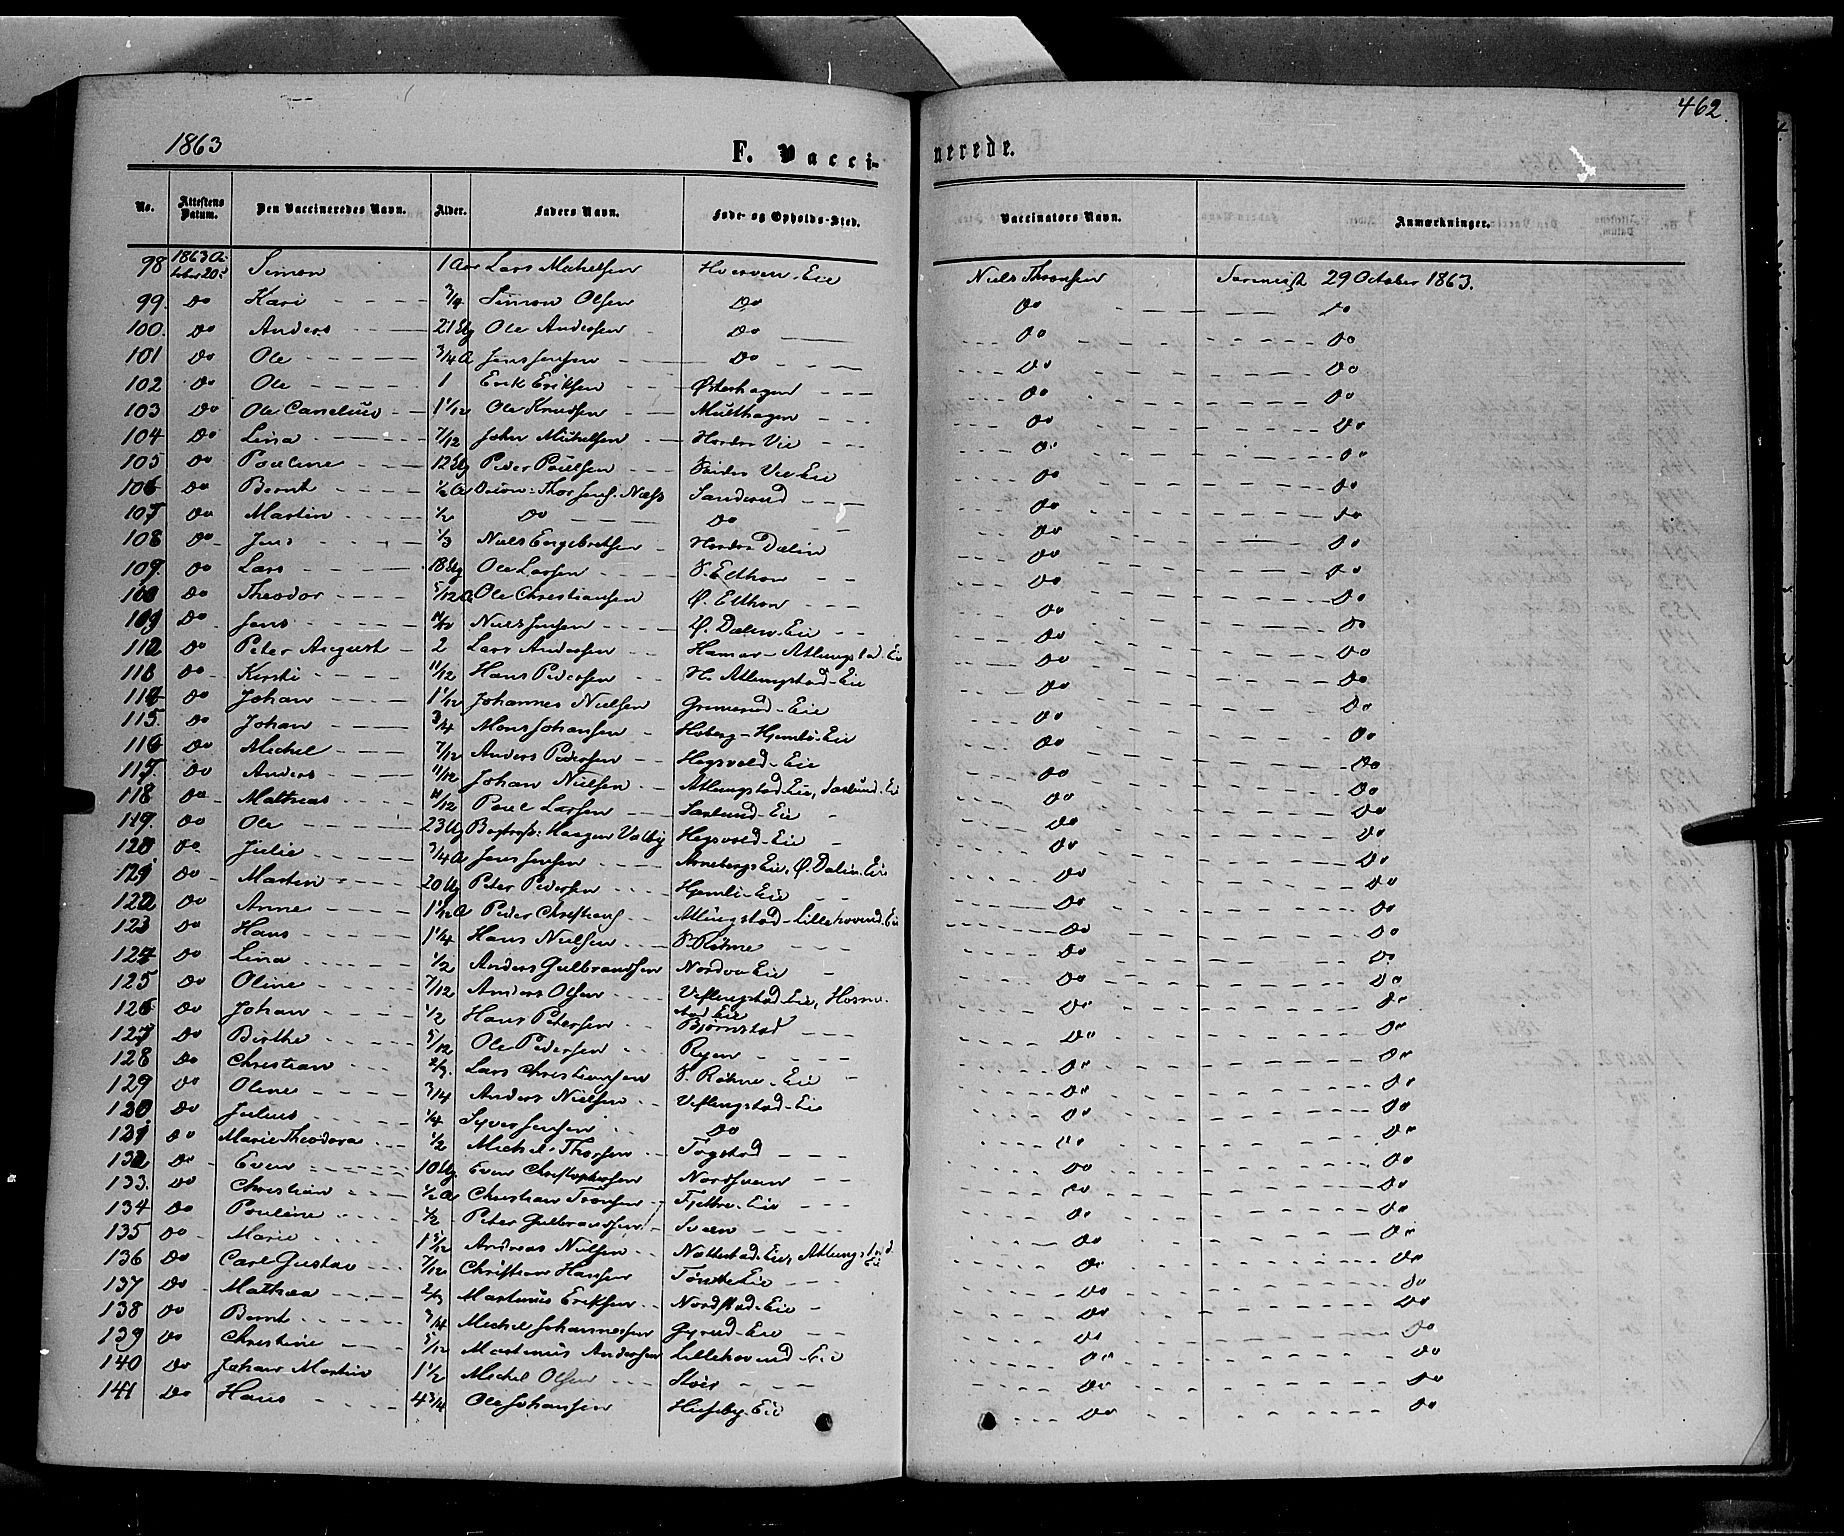 462.
1863
F. Vaccinerede.
No. Attestens Datum. Den Vaccineredes Navn. Alder. Faders Navn. Føde- og Opholds-Sted. Vaccinators Navn. Anmærkninger.
98 1863 October 20de Simon 1 Aar Lars Michelsen Hverven-Eie Niels Thronsen 29 October 1863.
99. Do Kari 3/4 Simon Olsen Do Do Do
100. Do Anders 21 Ug Ole Andersen Do Do Do
101 Do Ole 3/4 A Jens Jensen Do Do Do
102 Do Ole 1 Erik Eriksen Østerhagen Do Do
103 Do Ole Canelius 1 1/12 Ole Knudsen Multhagen Do Do
104 Do Lina 7/12 John Michelsen Nordre Vie Do Do
105 Do Pauline 12 Ug Peder Paulsen Søndre Vie Eie Do Do
106 Do Bernt 1/2 A Thor Jens. Næss Sanderud Do Do
107 Do Martin 1/2 Do Do Do Do
108 Do Jens 1/3 Niels Engebretsen Nordre Dælin Do Do
109. Do Lars 18 Ug Ole Larsen V. Elthon Do Do
110 Do Theodor 5/12 A Ole Christiansen Ø. Elthon Do Do
Do Jens Niels Jensen Ø. Dælin-Eie Do Do
112 Do Peter August 2 Lars Andersen Hamar-Atlungstad-Eie Do Do
113 Do Kirsti 11/12 Hans Pedersen N. Atlungstad-Eie Do Do
114 Do Johan 1 1/12 Johannes Nielsen Gremerud-Eie Do Do
115. Do Johan 3/4 Mons Johansen Hoberg-Hjemli-Eie Do Do
116 Do Michel 7/12 Anders Pedersen Hegsvold-Eie Do Do
117. Do Anders 11/12 Johan Nielsen Atlungstad Eie, Sælund-Eie Do Do
118 Do Mathias 11/12 Paul Larsen Sælund-Eie Do Do
119. Do Ole 23 Ug Haagen Valby Hegsvold-Eie Do Do
120 Do Julie 3/4 A Jens Jensen Arneberg-Eie, Ø. Dælin-Eie Do Do
121 Do Martin 20 Ug Peter Pedersen Hjemli-Eie Do Do
122 Do Anne 1 1/12 A Peder Christians. Atlungstad-Lillehovend-Eie Do Do
123 Do Hans 1 1/4 Hans Nielsen V. Røhne Do Do
124 Do Lina 1/2 Anders Gulbrandsen Nordvi-Eie Do Do
125 Do Oline 7/12 Anders Olsen Veflingstad-Eie, Hosmestad Eie Do Do
126 Do Johan 1/2 Hans Petersen Bjørnstad Do Do
127 Do Birthe 5/12 Ole Pedersen Ryen Do Do
128 Do Christian 2/3. Lars Christiansen V. Røhne-Eie Do Do
129 Do Oline 3/4 Anders Nielsen Veflingstad-Eie Do Do
130 Do Julius 1/4 Syver Jensen Do Do Do
131 Do Marie Theodora 1/2 Michel Thorsen Fogstad Do Do
132 Do Even 10 Ug Even Christophersen Nordsveen Do Do
133. Do Christian 1/2 A Christian Tronsen Fjettre-Eie Do Do
134 Do Pauline 1/2 Peter Gulbrandsen Sveen Do Do
135 Do Marie 1 5/12 Andreas Nielsen Nøttestad-Eie, Atlungstad-Eie Do Do
136 Do Carl Gustav 7/12 Christian Hansen Tønte Eie Do Do
137 Do Mathea 2/3 Martinus Eriksen Nordstad-Eie Do Do
138 Do Bernt 3/4 Michel Johannessen Gyrud-Eie Do Do
139 Do Christine 5/12 Martinus Andersen Lillehovend-Eie Do Do
140 Do Johan Martin 1 1/2 Michel Olsen Stoir Do Do
141 Do Hans 4 3/4 Ole Johansen Huseby-Eie Do Do